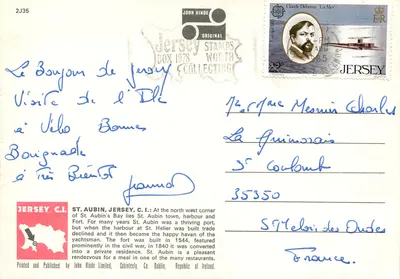 2J35
JOHN HINDE
ORIGINAL
Jersey STAMPS
BOX 1978 WORTH
COLLECTING
Claude Debussy La Mer
ER
22p
JERSEY
Le Bonjour de Jersey
Visite de l'Ile
à Vélo Bonnes
Baignade
à Très Bientôt
Mr et Mme Mesnier Charles
La
St Coulomb
35350
St Meloir des Ondes
France.
JERSEY C.I.
ST. AUBIN, JERSEY, C. I.: At the north west corner
of St. Aubin's Bay lies St. Aubin town, harbour and
Fort. For many years St. Aubin was a thriving port,
but when the harbour at St. Helier was built trade
declined and it then become the happy haven of the
yachtsman. The fort was built in 1544, featured
prominently in the civil war, in 1840 it was converted
into private residence. St. Aubin is a pleasant
rendezvous for a meal in one of the many restaurants.
Printed and Published by John Hinde Limited, Cabinteely Co. Dublin, Republic of Ireland.